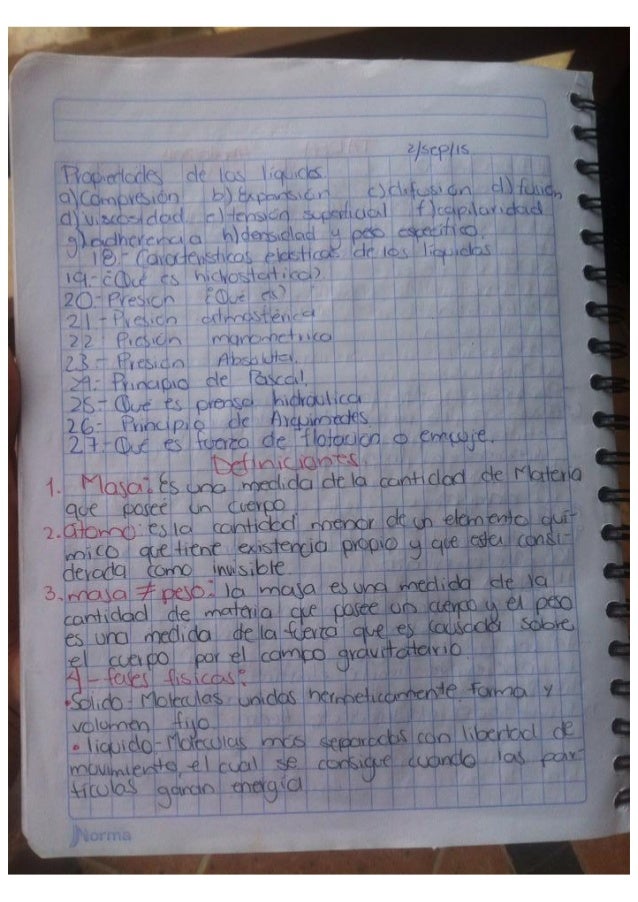 2/sep/15
Propiedades de los liquidos
a) Compresión b) Expansión c) difusión d) fusión
d) viscosidad e) tensión superficial f) capilaridad
g) adherencia h) densidad y peso especifico.
18- Caracteristicas elasticas de los liquidos
19.- ¿Qué es hidrostatica?
20- Presión ¿Qué es?
21- Presión atmosférica
22. Presión manometrica
23- Presión Absoluta.
24.- Principio de Pascal.
25- Qué es prensa hidraulica
26- Principio de Arquimedes.
27- Qué es fuerza de flotación o empuje.
Definiciones.
1. Masa: Es una medida de la cantidad de Materia
que posee un cuerpo
2. átomo: es la cantidad menor de un elemento quí-
mico que tiene existencia propio y que esta consi-
derada como invisible
3. masa ≠ peso: la masa es una medida de la
cantidad de materia que posee un cuerpo y el peso
es una medida de la fuerza que es causada sobre
el cuerpo por el campo gravitatorio
4- fases fisicas:
• Solido- Moleculas unidas hermeticamente. forma y
volumen fijo
• liquido- Moleculas mas separadas con libertad de
movimiento, el cual se consigue cuando las par-
ticulas ganan energia
Norma